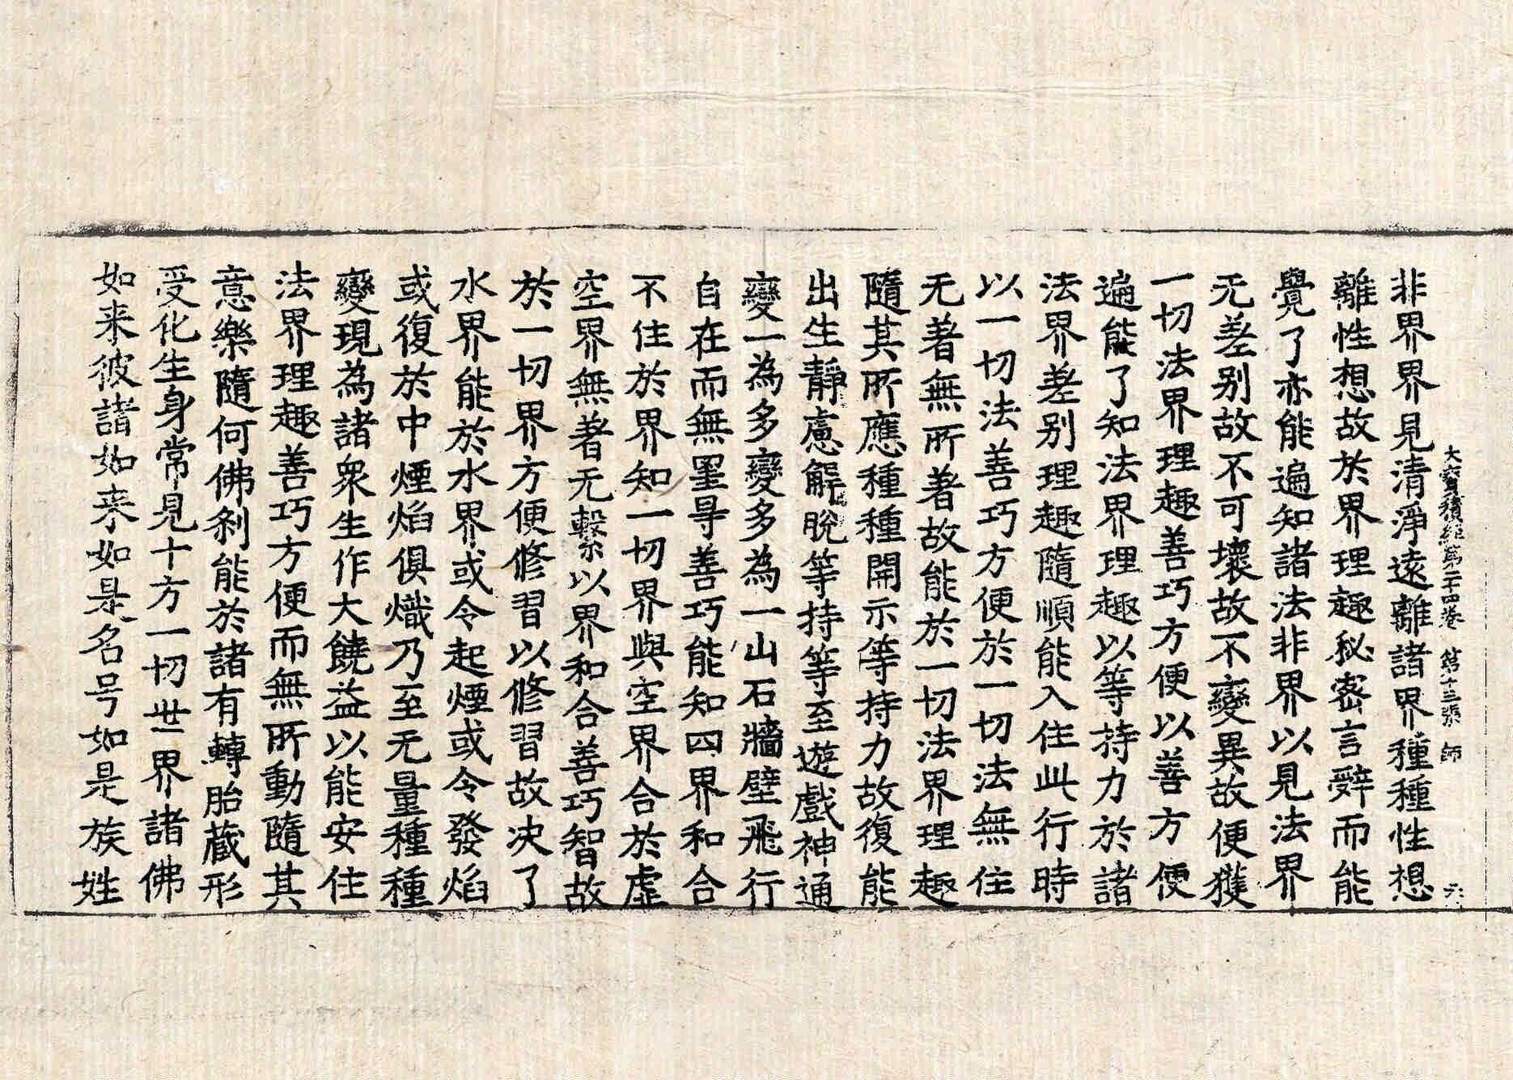 大寶積經第二十四卷 第十三張 師 六
非界界見清淨遠離諸界種種性想
離性想故於界理趣秘密言辭而能
覺了亦能遍知諸法非界以見法界
无差别故不可壞故不變異故便獲
一切法界理趣善巧方便以善方便
遍能了知法界理趣以等持力於諸
法界差别理趣隨順能入住此行時
以一切法善巧方便於一切法無住
无著無所著故能於一切法界理趣
隨其所應種種開示等持力故復能
出生靜慮解脫等持等至遊戲神通
變一為多變多為一山石牆壁飛行
自在而無罣㝵善巧能知四界和合
不住於界知一切界與空界合於虛
空界無著无繫以界和合善巧智故
於一切界方便修習以修習故决了
水界能於水界或令起煙或令發焰
或復於中煙焰俱熾乃至无量種種
變現為諸衆生作大饒益以能安住
法界理趣善巧方便而無所動隨其
意樂隨何佛刹能於諸有轉胎藏形
受化生身常見十方一切世界諸佛
如来彼諸如来如是名号如是族姓